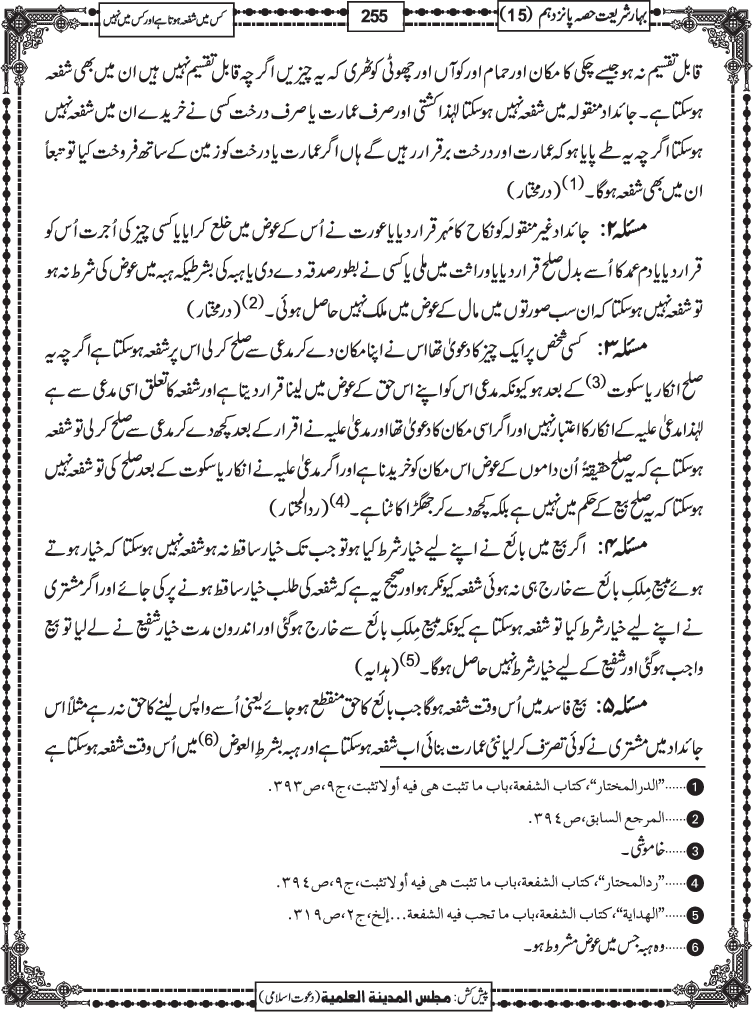 بہار شریعت حصہ پانزدہم (15)
255
کس میں شفعہ ہوتا ہے اور کس میں نہیں
قابل تقسیم نہ ہو جیسے چکی کا مکان اور حمام اور کوآں اور چھوٹی کوٹھری کہ یہ چیزیں اگرچہ قابل تقسیم نہیں ہیں ان میں بھی شفعہ
ہوسکتا ہے۔ جائداد منقولہ میں شفعہ نہیں ہوسکتا لہٰذا کشتی اور صرف عمارت یا صرف درخت کسی نے خریدے ان میں شفعہ نہیں
ہوسکتا اگرچہ یہ طے پایا ہو کہ عمارت اور درخت برقرار رہیں گے ہاں اگر عمارت یا درخت کو زمین کے ساتھ فروخت کیا تو تبعاً
ان میں بھی شفعہ ہوگا۔(1) (درمختار)
مسئلہ ۲: جائداد غیر منقولہ کو نکاح کا مَہر قرار دیا یا عورت نے اُس کے عوض میں خلع کرایا یا کسی چیز کی اُجرت اُس کو
قرار دیا یا دم عمد کا اُسے بدل صلح قرار دیا یا وراثت میں ملی یا کسی نے بطور صدقہ دے دی یا ہبہ کی بشرطیکہ ہبہ میں عوض کی شرط نہ ہو
تو شفعہ نہیں ہوسکتا کہ ان سب صورتوں میں مال کے عوض میں ملک نہیں حاصل ہوئی۔(2) (درمختار)
مسئلہ ۳: کسی شخص پر ایک چیز کا دعویٰ تھا اس نے اپنا مکان دے کر مدعی سے صلح کر لی اس پر شفعہ ہوسکتا ہے اگرچہ یہ
صلح انکار یا سکوت(3) کے بعد ہو کیونکہ مدعی اس کو اپنے اس حق کے عوض میں لینا قرار دیتا ہے اور شفعہ کا تعلق اسی مدعی سے ہے
لہٰذا مدعیٰ علیہ کے انکار کا اعتبار نہیں اور اگر اسی مکان کا دعویٰ تھا اور مدعیٰ علیہ نے اقرار کے بعد کچھ دے کر مدعی سے صلح کر لی تو شفعہ
ہوسکتا ہے کہ یہ صلح حقیقۃً اُن داموں کے عوض اس مکان کو خریدنا ہے اور اگر مدعیٰ علیہ نے انکار یا سکوت کے بعد صلح کی تو شفعہ نہیں
ہوسکتا کہ یہ صلح بیع کے حکم میں نہیں ہے بلکہ کچھ دے کر جھگڑا کاٹنا ہے۔(4) (ردالمحتار)
مسئلہ ۴: اگر بیع میں بائع نے اپنے لیے خیار شرط کیا ہو تو جب تک خیار ساقط نہ ہو شفعہ نہیں ہوسکتا کہ خیار ہوتے
ہوئے مبیع مِلکِ بائع سے خارج ہی نہ ہوئی شفعہ کیونکر ہو اور صحیح یہ ہے کہ شفعہ کی طلب خیار ساقط ہونے پر کی جائے اور اگر مشتری
نے اپنے لیے خیار شرط کیا تو شفعہ ہوسکتا ہے کیونکہ مبیع مِلکِ بائع سے خارج ہوگئی اور اندرون مدت خیار شفیع نے لے لیا تو بیع
واجب ہوگئی اور شفیع کے لیے خیار شرط نہیں حاصل ہوگا۔(5) (ہدایہ)
مسئلہ ۵: بیع فاسد میں اُس وقت شفعہ ہوگا جب بائع کا حق منقطع ہو جائے یعنی اُسے واپس لینے کا حق نہ رہے مثلاً اس
جائداد میں مشتری نے کوئی تصرّف کر لیا نئی عمارت بنائی اب شفعہ ہوسکتا ہے اور ہبہ بشرطِ العوض(6) میں اُس وقت شفعہ ہوسکتا ہے
1 ......"الدرالمختار"،كتاب الشفعة،باب ما تثبت هى فيه أولا تثبت،ج٩،ص٣٩٣.
2 ......المرجع السابق،ص٣٩٤.
3 ......خاموشی۔
4 ......"ردالمحتار"،كتاب الشفعة،باب ما تثبت هى فيه أولا تثبت،ج٩،ص٣٩٤.
5 ......"الهداية"،كتاب الشفعة،باب ما تجب فيه الشفعة...إلخ،ج٢،ص٣١٩.
6 ......وہ ہبہ جس میں عوض مشروط ہو۔
پیش کش: مجلس المدينة العلمية (دعوت اسلامی)